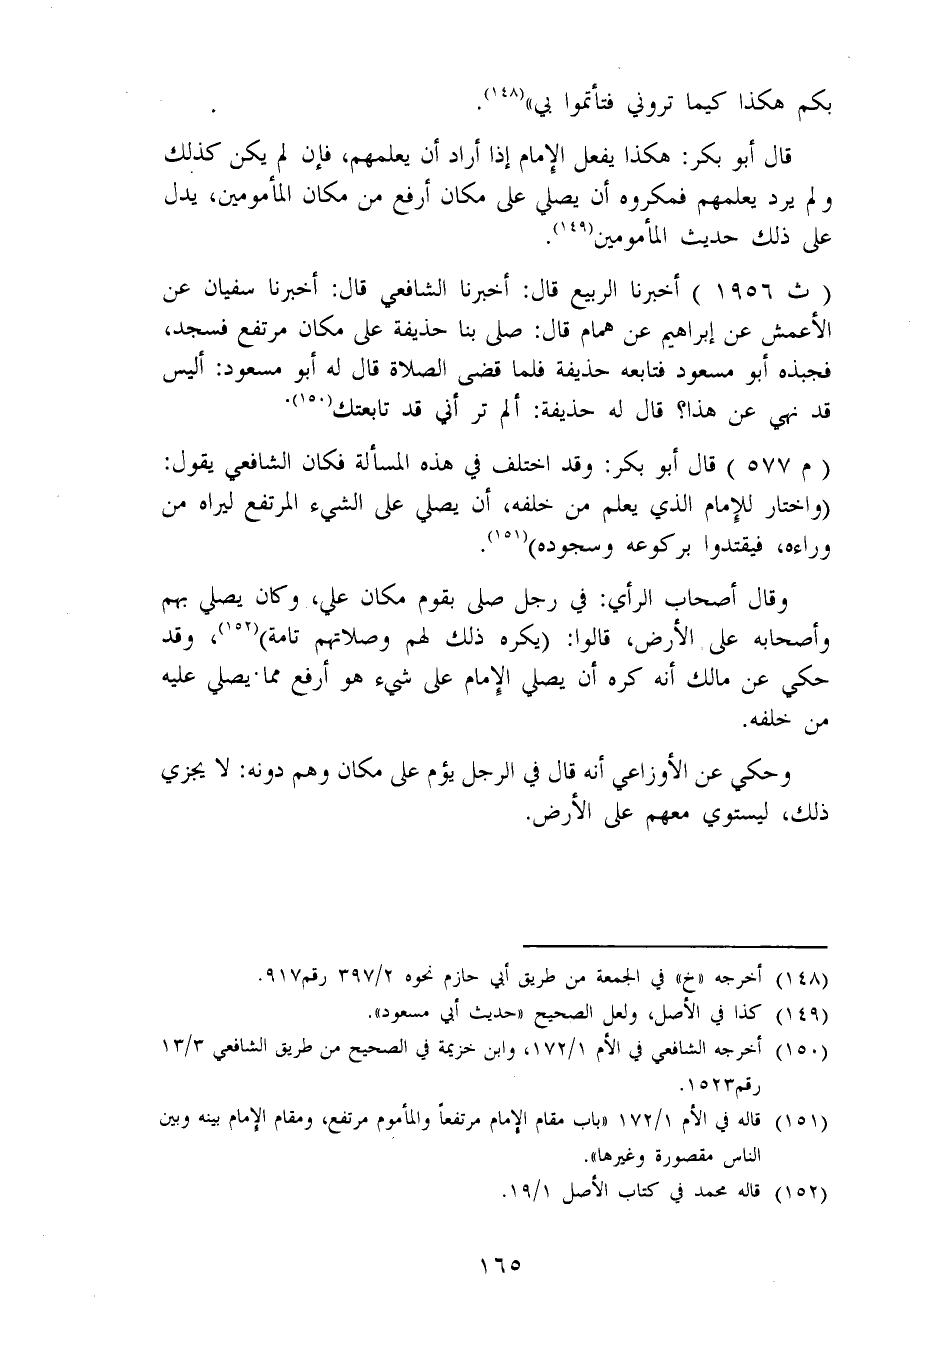 بكم هكذا كيما تروني فتأتموا بي»(١٤٨).
قال أبو بكر: هكذا يفعل الإمام إذا أراد أن يعلمهم، فإن لم يكن كذلك
ولم يرد يعلمهم فمكروه أن يصلي على مكان أرفع من مكان المأمومين، يدل
على ذلك حديث المأمومين(١٤٩).
( ث ١٩٥٦ ) أخبرنا الربيع قال: أخبرنا الشافعي قال: أخبرنا سفيان عن
الأعمش عن إبراهيم عن همام قال: صلى بنا حذيفة على مكان مرتفع فسجد،
فجبذه أبو مسعود فتابعه حذيفة فلما قضى الصلاة قال له أبو مسعود: أليس
قد نهي عن هذا؟ قال له حذيفة: ألم تر أني قد تابعتك(١٥٠).
( م ٥٧٧ ) قال أبو بكر: وقد اختلف في هذه المسألة فكان الشافعي يقول:
(واختار للإمام الذي يعلم من خلفه، أن يصلي على الشيء المرتفع ليراه من
وراءه، فيقتدوا بركوعه وسجوده)(١٥١).
وقال أصحاب الرأي: في رجل صلى بقوم مكان علي، وكان يصلي بهم
وأصحابه على الأرض، قالوا: (يكره ذلك لهم وصلاتهم تامة)(١٥٢)، وقد
حكي عن مالك أنه كره أن يصلي الإمام على شيء هو أرفع مما يصلي عليه
من خلفه.
وحكي عن الأوزاعي أنه قال في الرجل يؤم على مكان وهم دونه: لا يجزي
ذلك، ليستوي معهم على الأرض.
(١٤٨) أخرجه «خ» في الجمعة من طريق أبي حازم نحوه ٣٩٧/٢ رقم٩١٧.
(١٤٩) كذا في الأصل، ولعل الصحيح «حديث أبي مسعود».
(١٥٠) أخرجه الشافعي في الأم ١٧٢/١، وابن خزيمة في الصحيح من طريق الشافعي ١٣/٣
رقم١٥٢٣.
(١٥١) قاله في الأم ١٧٢/١ «باب مقام الإمام مرتفعاً والمأموم مرتفع، ومقام الإمام بينه وبين
الناس مقصورة وغيرها».
(١٥٢) قاله محمد في كتاب الأصل ١٩/١.
١٦٥